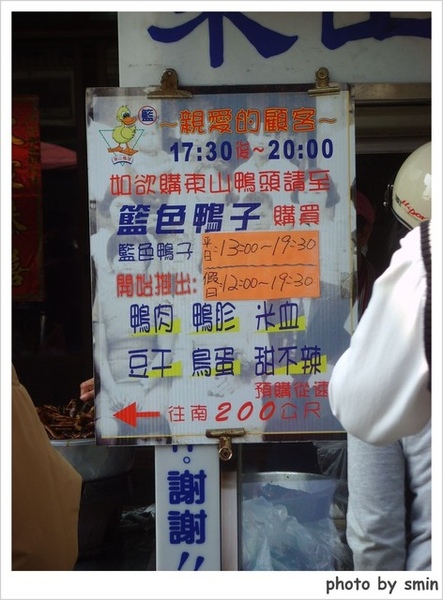 籃
~親愛的顧客~
17:30後~20:00
如欲購東山鴨頭請至
籃色鴨子 購買
籃色鴨子 平日:13:00~19:30
開始推出: 假日:12:00~19:30
鴨肉 鴨胗 米血
豆干 鳥蛋 甜不辣
預購從速
往南200公尺
謝謝!!
photo by smin